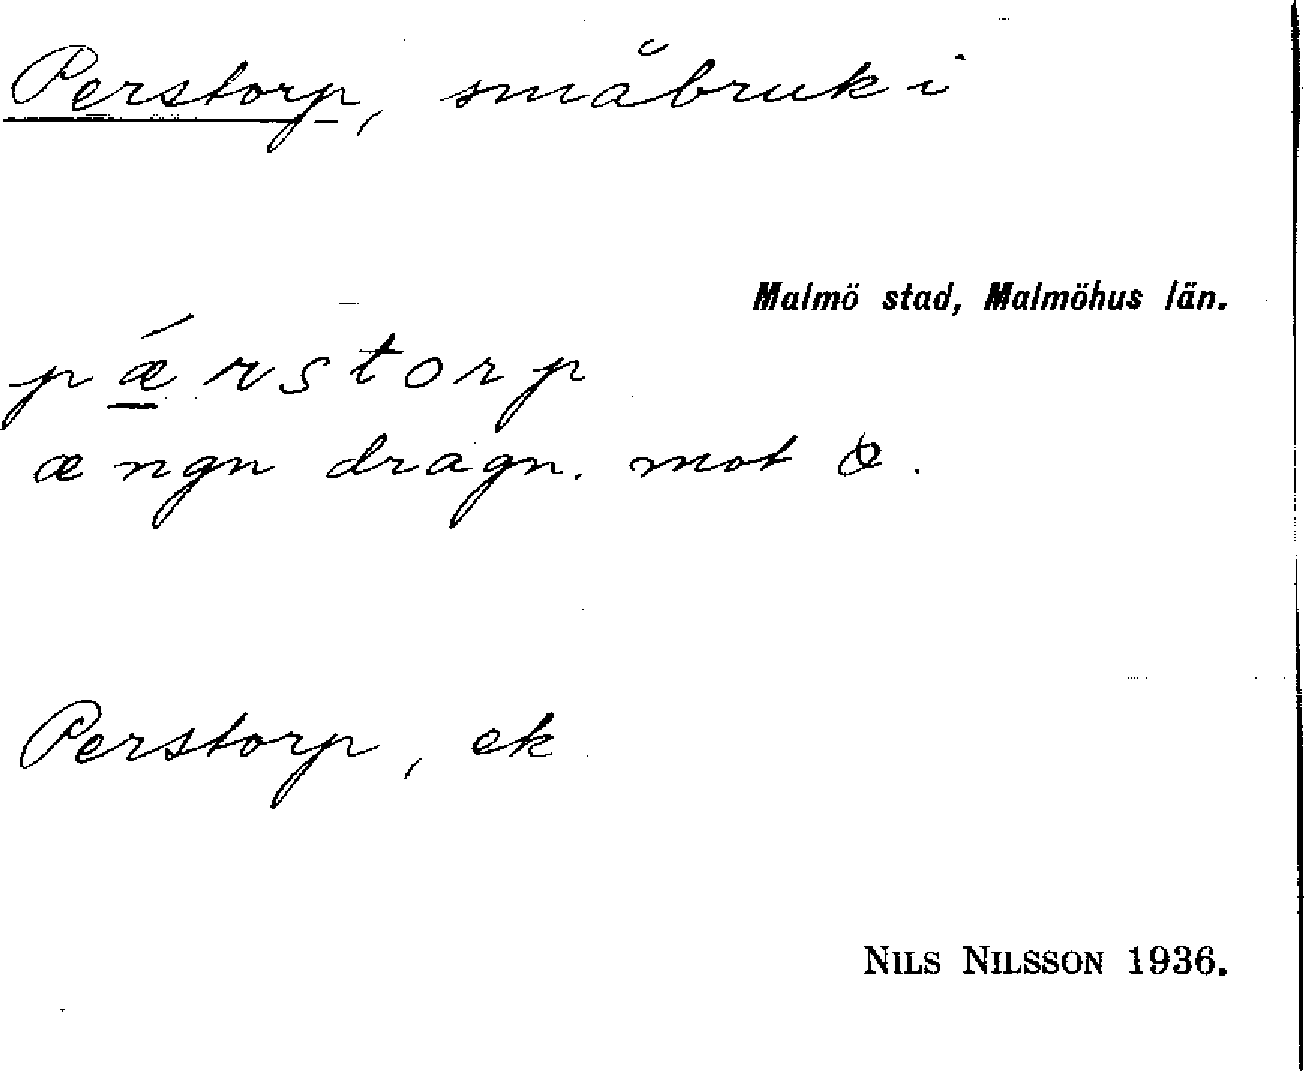 Perstorp, småbruk i
Malmö stad, Malmöhus län.
pǽrstorp
æ ngn dragn. mot
Perstorp, ek
NILS NILSSON 1936.